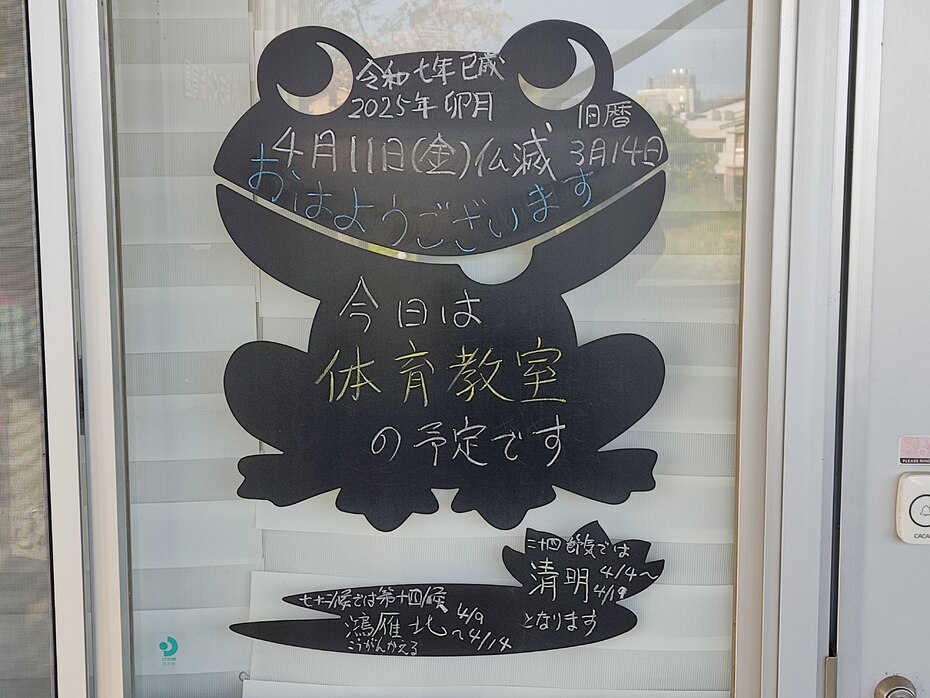 令和七年 巳歳
2025年 卯月
旧暦
4月11日(金)仏滅 3月14日
おはようございます
今日は
体育教室
の予定です
二十四節気では
清明 4/4～
4/19
となります
七十二候では第十四候
鴻雁北 4/9
～4/14
こうがんかえる
PLEASE RING